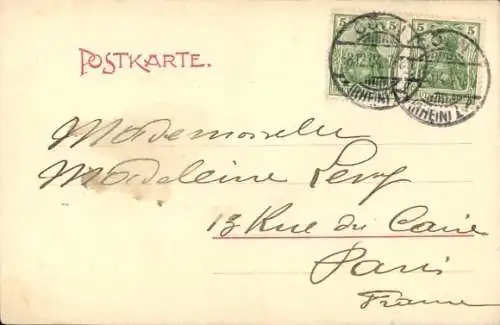 5 5
POSTKARTE.
(RHEIN) (RHEIN)
Mademoiselle
Madeleine Levy
13 Rue du Caire
Paris
France